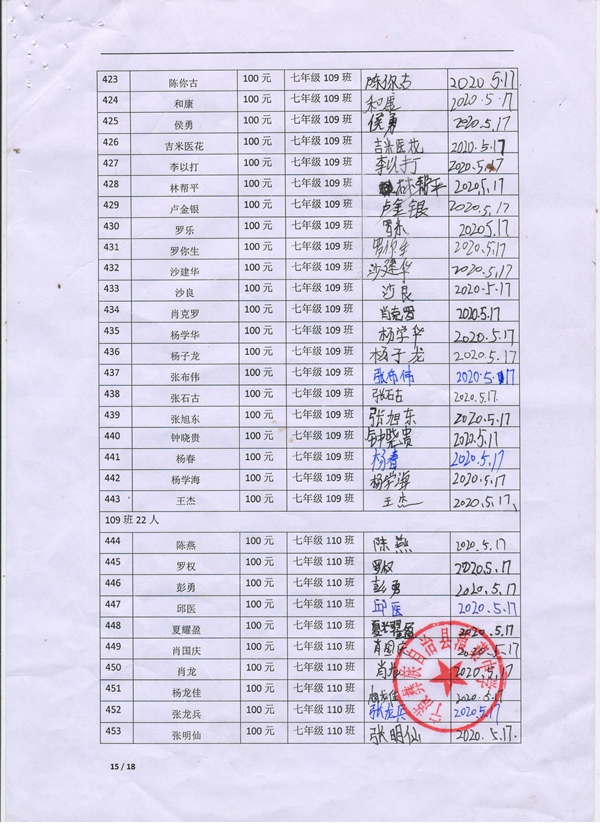 423 陈你古 100 元 七年级 109 班 陈你古 2020 5.17
424 和康 100 元 七年级 109 班 和康 2020.5.17
425 侯勇 100 元 七年级 109 班 侯勇 2020.5.17
426 吉米医花 100 元 七年级 109 班 吉米医花 2020.5.17
427 李以打 100 元 七年级 109 班 李以打 2020.5.17
428 林帮平 100 元 七年级 109 班 林帮平 2020.5.17
429 卢金银 100 元 七年级 109 班 卢金银 2020.5.17
430 罗乐 100 元 七年级 109 班 罗乐 2020.5.17
431 罗你生 100 元 七年级 109 班 罗你生 2020.5.17
432 沙建华 100 元 七年级 109 班 沙建华 2020.5.17
433 沙良 100 元 七年级 109 班 沙良 2020.5.17
434 肖克罗 100 元 七年级 109 班 肖克罗 2020.5.17
435 杨学华 100 元 七年级 109 班 杨学华 2020.5.17
436 杨子龙 100 元 七年级 109 班 杨子龙 2020.5.17
437 张布伟 100 元 七年级 109 班 张布伟 2020.5.17
438 张石古 100 元 七年级 109 班 张石古 2020.5.17.
439 张旭东 100 元 七年级 109 班 张旭东 2020.5.17
440 钟晓贵 100 元 七年级 109 班 钟晓贵 2020.5.17
441 杨春 100 元 七年级 109 班 杨春 2020.5.17
442 杨学海 100 元 七年级 109 班 杨学海 2020.5.17
443 王杰 100 元 七年级 109 班 王杰 2020.5.17
109 班 22 人
444 陈燕 100 元 七年级 110 班 陈燕 2020.5.17
445 罗权 100 元 七年级 110 班 罗权 2020.5.17
446 彭勇 100 元 七年级 110 班 彭勇 2020.5.17
447 邱医 100 元 七年级 110 班 邱医 2020.5.17
448 夏耀盈 100 元 七年级 110 班 夏耀盈 2020.5.17
449 肖国庆 100 元 七年级 110 班 肖国庆 2020.5.17
450 肖龙 100 元 七年级 110 班 肖龙 2020.5.17
451 杨龙佳 100 元 七年级 110 班 杨龙佳 2020.5.17
452 张龙兵 100 元 七年级 110 班 张龙兵 2020.5.17
453 张明仙 100 元 七年级 110 班 张明仙 2020.5.17.
15 / 18